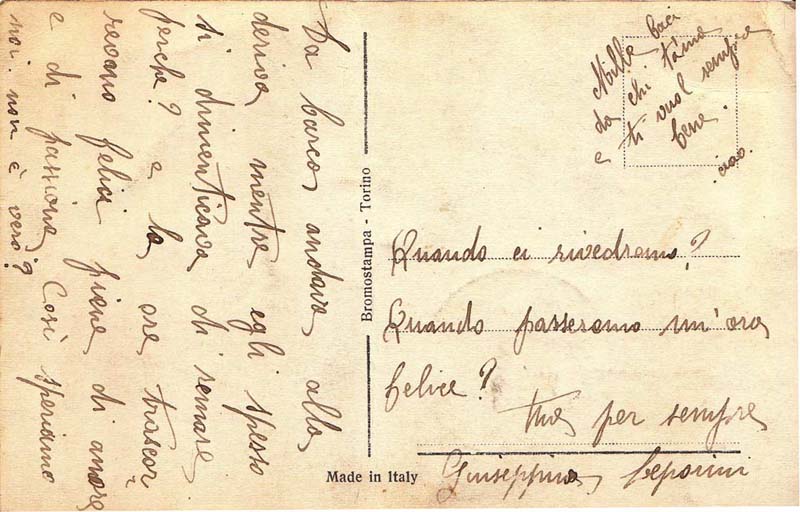 La barca andava alla
deriva, mentre egli spesso
si dimenticava di remare,
perchè? e le ore trascor-
revano felici piene di amore
e di passione. Così speriamo
noi. non è vero?
Bromostampa - Torino
Made in Italy
Mille baci
da chi t'ama
e ti vuol sempre
bene.
ciao.
Quando ci rivedremo?
Quando passeremo un'ora
felice?
tua per sempre
Giuseppina Leporini